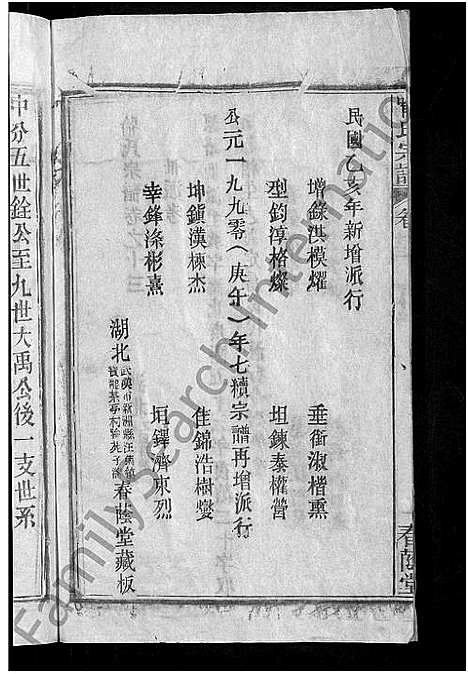 氏宗譜 卷
春蔭堂
民國乙亥年新增派行
增錄淇模燿
垂衡淑楷熏
型鈞淳格燦
坦鍊泰權營
公元一九九零(庚午)年七續宗譜再增派行
坤鎮漢棟杰
佳錦浩樹燮
幸鋒滌彬熹
垣鐸濟東烈
湖北
武漢市新洲縣汪集鎮
春蔭堂藏板
中分五世銓公至九世大禹公後一支世系
FamilySearch International